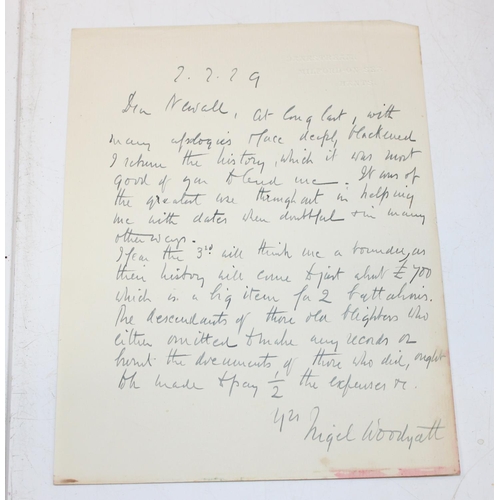 2.2.29
Dear Newall, At long last, with
many apologies & face deeply blackened
I return the history, which it was most
good of you to lend me. It was of
the greatest use throughout in helping
me with dates when doubtful & in many
other ways.
I fear the 3rd will think me a bounder, as
their history will come to just about £700
which is a big item for 2 battalions.
The descendants of those old blighters who
either omitted to make any records or
burnt the documents of those who did, ought
to be made to pay ½ the expenses &c.
Yrs
Nigel Woodyatt